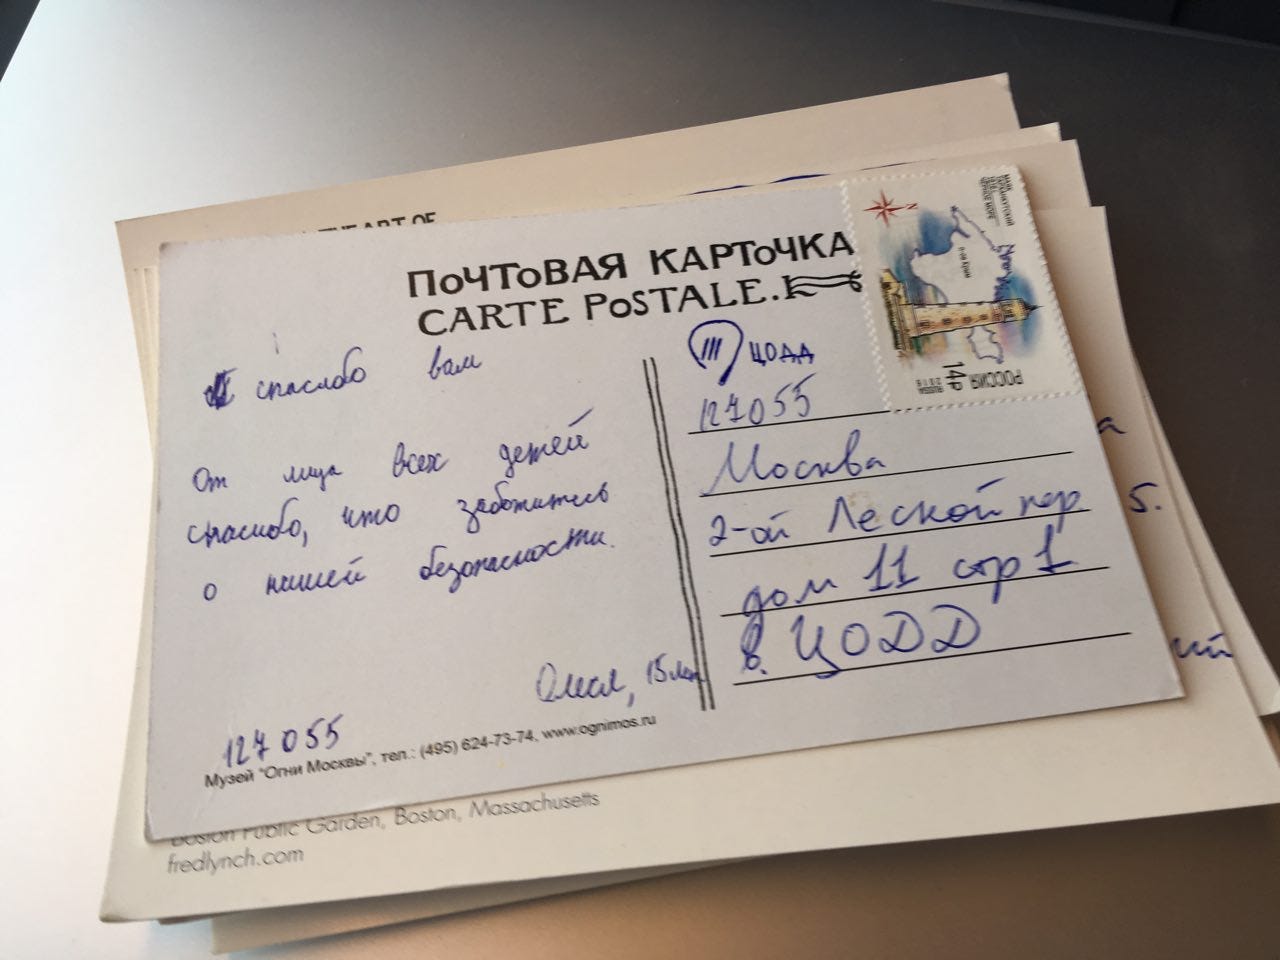 THE ART OF
ПОЧТОВАЯ КАРТОЧКА
CARTE POSTALE.
спасибо вам
От лица всех детей
спасибо, что заботитесь
о нашей безопасности.
Олеся, 15 лет
127055
Музей "Огни Москвы", тел.: (495) 624-73-74, www.ognimos.ru
ЦОДД
127055
Москва
2-ой Леской пер.
дом 11 стр 1
в. ЦОДД
МАЯК
ТАРХАНКУТСКИЙ
1816 г.
ЧЕРНОЕ МОРЕ
N
п-ов Крым
РОССИЯ 14р
RUSSIA
2016
а
5.
ий
Boston Public Garden, Boston, Massachusetts
fredlynch.com